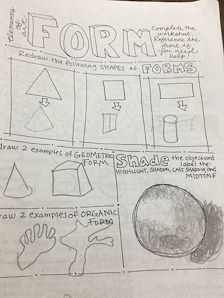 elements
of
art
FORM
Complete the
worksheet.
Reference the
front if
you need
help!
Redraw the following SHAPES as FORMS
raw 2 examples of GEOMETRIC
FORM
Shade the object and
label the:
HIGHLIGHT, SHADOW, CAST SHADOW, AND
MIDTONE
raw 2 examples of ORGANIC
FORM